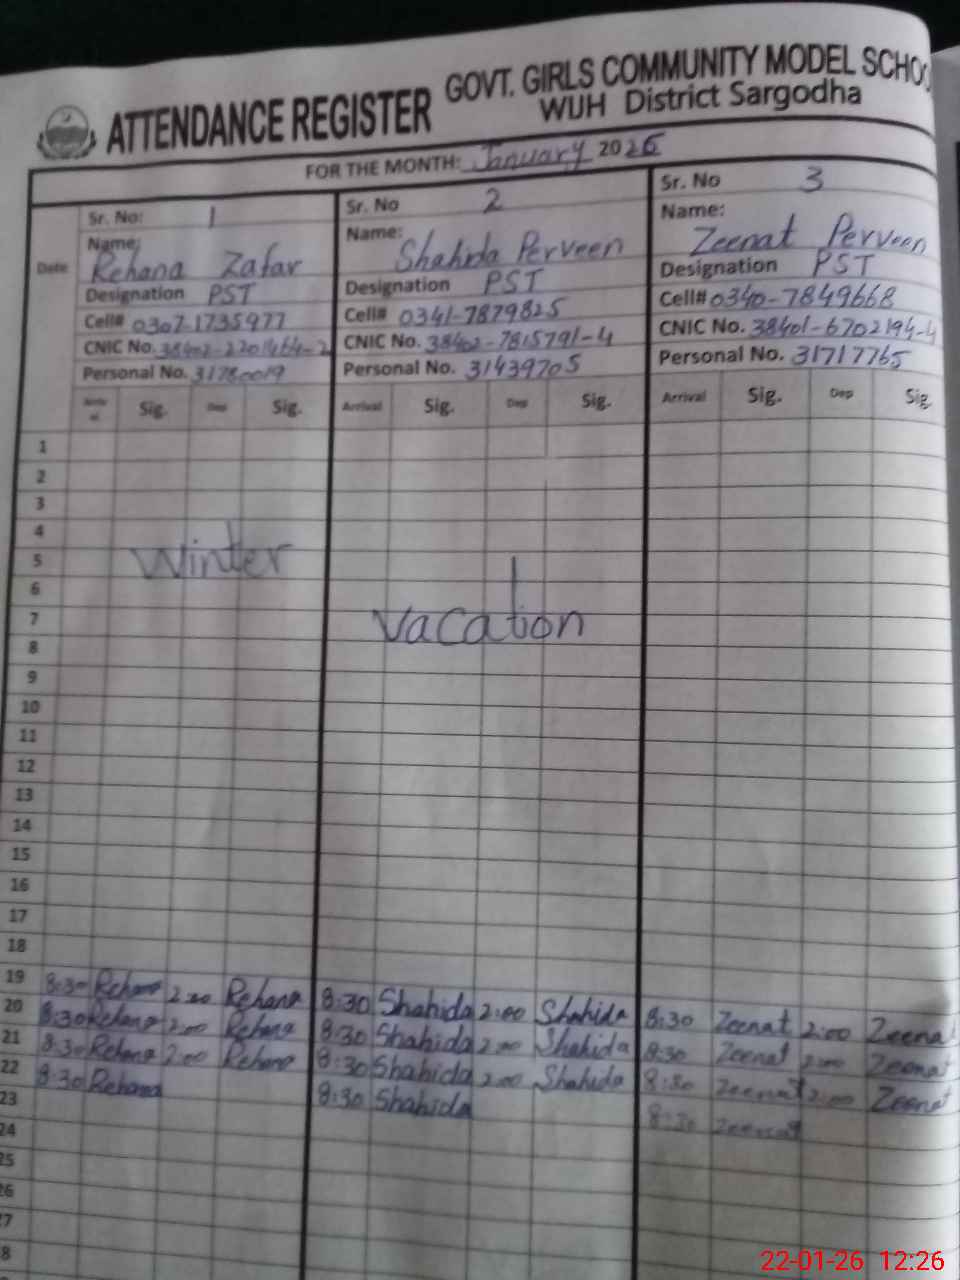 ATTENDANCE REGISTER GOVT. GIRLS COMMUNITY MODEL SCHOO
WUH District Sargodha
FOR THE MONTH: January 2026
Date
Sr. No: 1
Name:
Rehana Zafar
Designation PST
Cell# 0307-1735977
CNIC No. 38402-2201464-2
Personal No. 31780019
Sig. Dep Sig.
Sr. No 2
Name:
Shahida Perveen
Designation PST
Cell# 0341-7879825
CNIC No. 38402-7815791-4
Personal No. 31439705
Arrival Sig. Dep Sig.
Sr. No 3
Name:
Zeenat Perveen
Designation PST
Cell# 0340-7849668
CNIC No. 38401-6702194-4
Personal No. 31717765
Arrival Sig. Dep Sig.
1
2
3
4
Winter
5
6
7 vacation
8
9
10
11
12
13
14
15
16
17
18
19 8:30 Rehana 2:00 Rehana 8:30 Shahida 2:00 Shahida 8:30 Zeenat 2:00 Zeenat
20 8:30 Rehana 2:00 Rehana 8:30 Shahida 2:00 Shahida 8:30 Zeenat 2:00 Zeenat
21 8:30 Rehana 2:00 Rehana 8:30 Shahida 2:00 Shahida 8:30 Zeenat 2:00 Zeenat
22 8:30 Rehana 8:30 Shahida 8:30 Zeenat
23
24
25
26
27
8
22-01-26 12:26